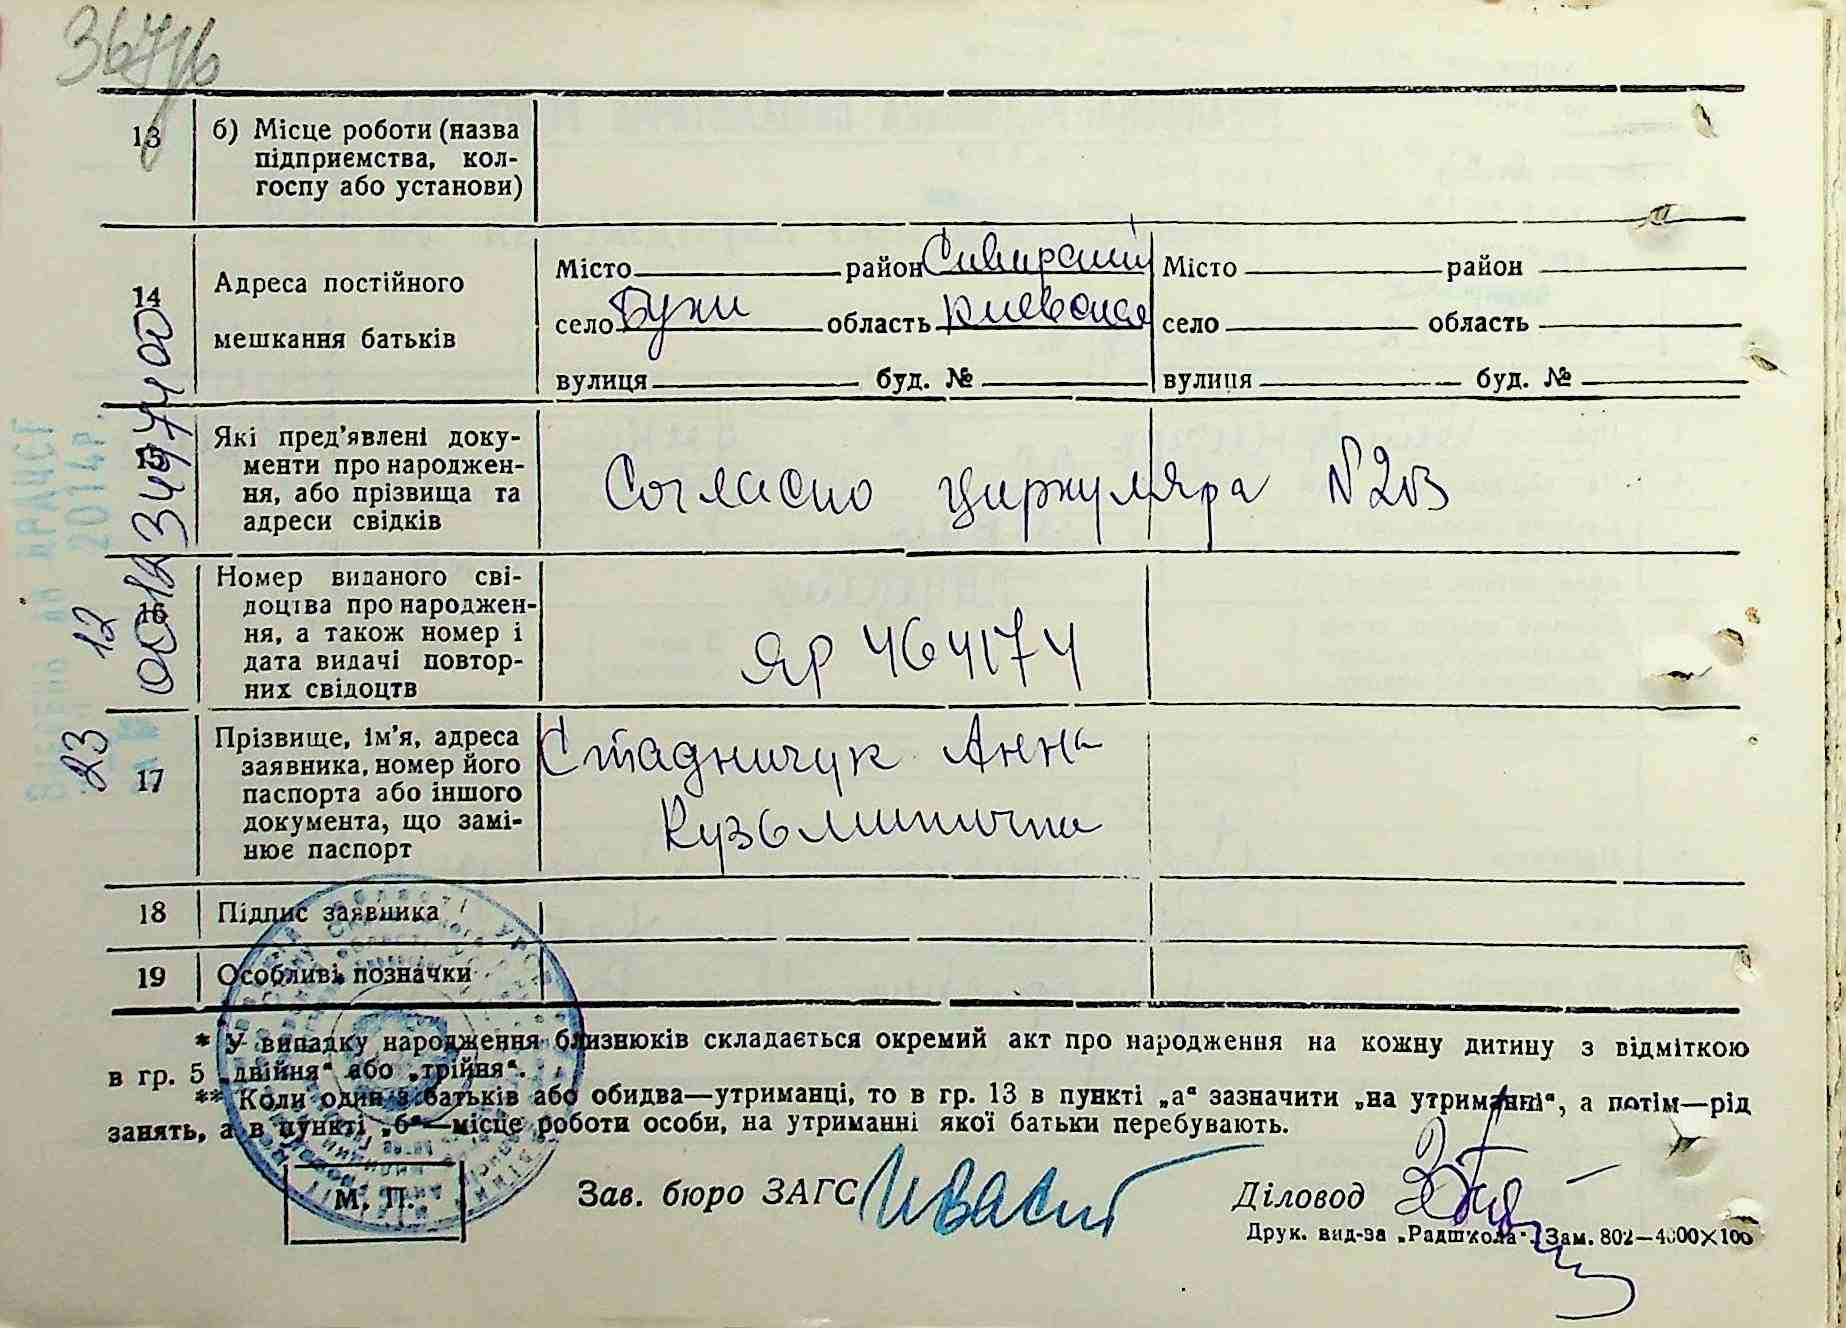 367/6
13 б) Місце роботи (назва
підприємства, кол-
госпу або установи)
14 Адреса постійного
мешкання батьків
Місто район Сквирский Місто район
село Буки область Киевская село область
вулиця буд. № вулиця буд. №
15 Які пред'явлені доку-
менти про народжен-
ня, або прізвища та
адреси свідків
Согласно циркуляра №203
16 Номер виданого сві-
доцтва про народжен-
ня, а також номер і
дата видачі повтор-
них свідоцтв
ЯР 464174
17 Прізвище, ім'я, адреса
заявника, номер його
паспорта або іншого
документа, що замі-
нює паспорт
Стадничук Анна
Кузьминична
18 Підпис заявника
19 Особливі позначки
* У випадку народження близнюків складається окремий акт про народження на кожну дитину з відміткою
в гр. 5 „двійня“ або „трійня“.
** Коли один з батьків або обидва—утриманці, то в гр. 13 в пункті „а“ зазначити „на утриманні“, а потім—рід
занять, а в пункті „б“—місце роботи особи, на утриманні якої батьки перебувають.
М. П.
Зав. бюро ЗАГС
Діловод
Друк. вид-ва „Радшкола“. Зам. 802—4000×100
2014р.
23 12